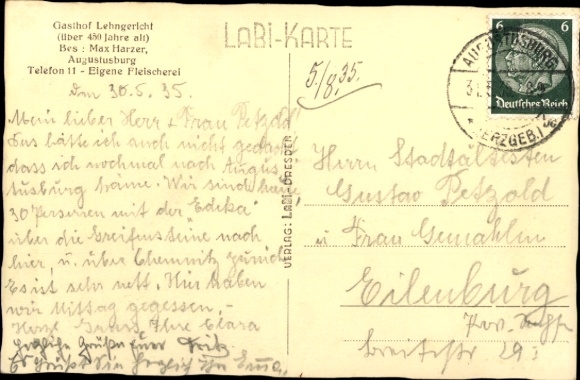 Gasthof Lehngericht
(über 450 Jahre alt)
Bes : Max Harzer,
Augustusburg
Telefon 11 - Eigene Fleischerei
LABI-KARTE
5./8. 35.
Den 30.5.35.
Mein lieber Herr u Frau Petzold
Das hätte ich auch nicht gedacht
dass ich nochmal nach Augus
tusburg käme. Wir sind heute
30 Personen mit der "Edeka"
über die Greifensteine nach
hier u. über Chemnitz zurück
Es ist sehr nett. Hier haben
wir Mittag gegessen.-
Herzl. Grüsse Ihre Clara
herzliche Grüße Euer Fritz
Es grüßt Sie herzlich Ihr
VERLAG: LABI-DRESDEN
6 6
Deutsches Reich
AUGUSTUSBURG
(ERZGEB.)
Herrn Stadtältesten
Gustav Petzold
u Frau Gemahlin
Eilenburg
Prov.
Breitestr 29